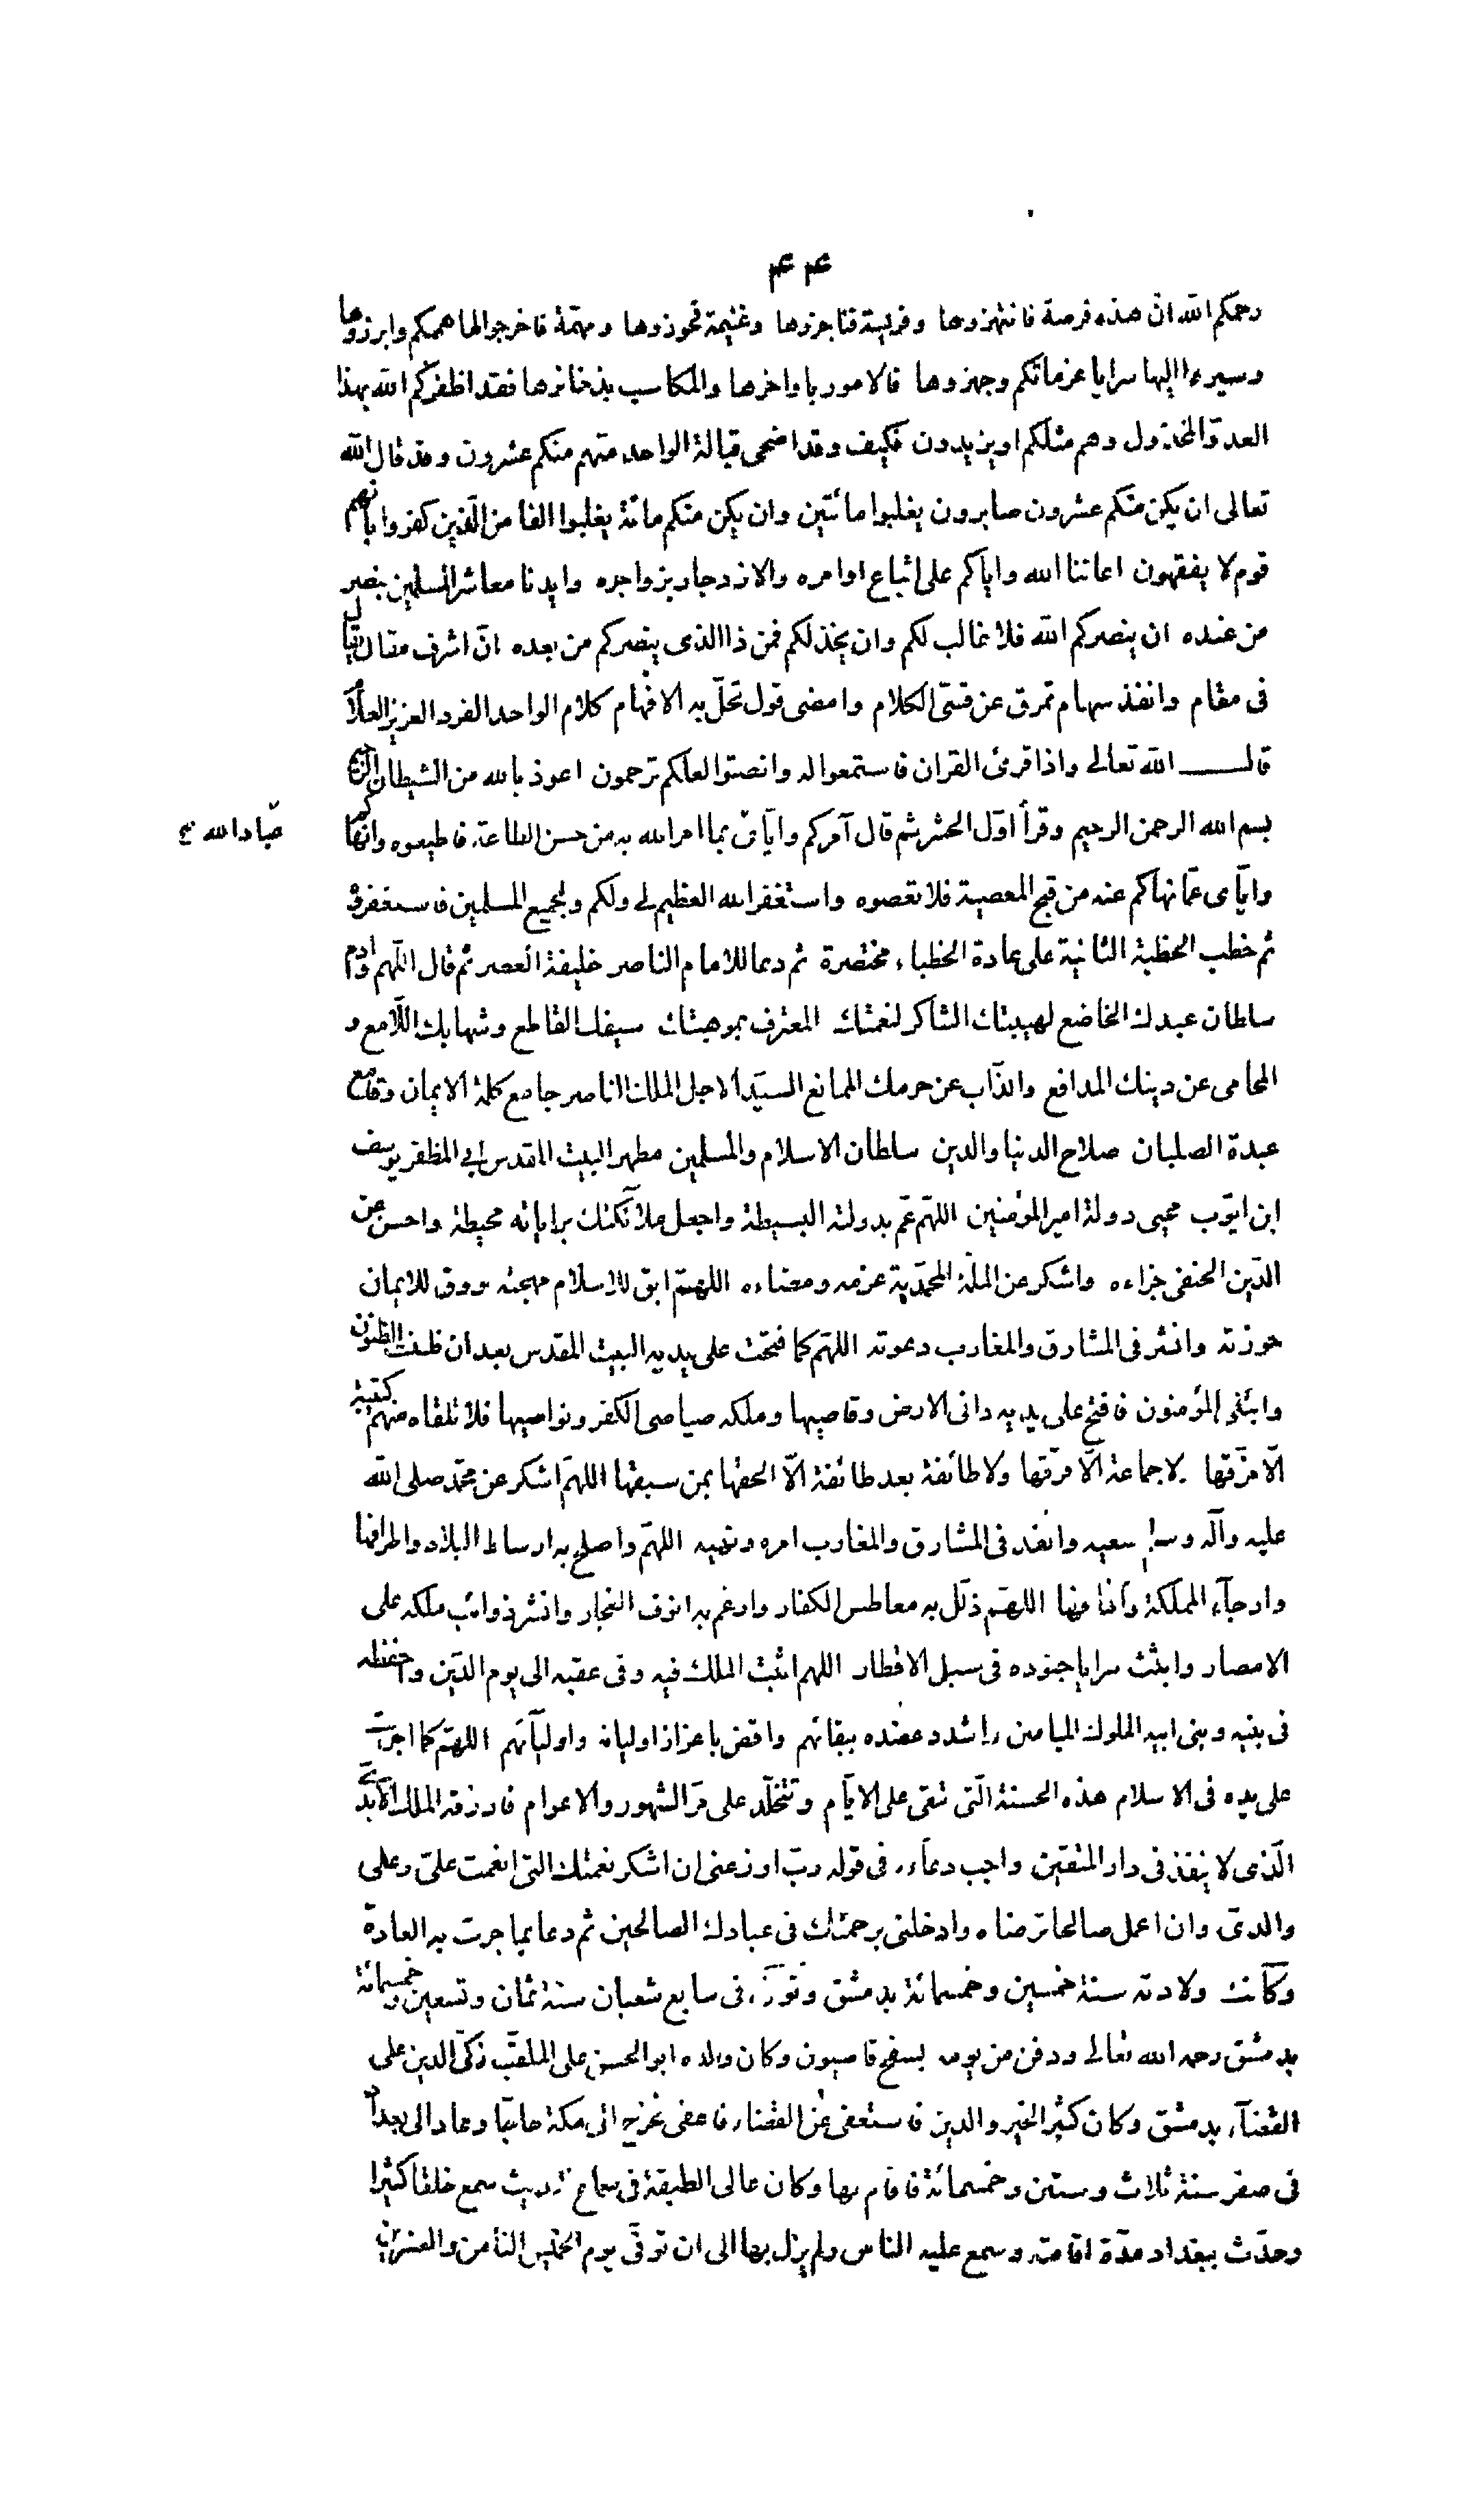 ٤٤
رحمكم الله ان هذه فرصة فانتهزوها وفريسة فناجزوها وغنيمة فحوزوها ومهمّة فاخرجوا لها هممكم وابرزوها
وسيروا اليها سرايا عزماتكم وجهزوها فالامور باواخرها والمكاسب بذخائرها فقد اظفركم الله بهذا
العدوّ المخذول وهم مثلكم او يزيدون فكيف وقد اضحى قبالة الواحد منهم منكم عشرون وقد قال الله
تعالى ان يكن منكم عشرون صابرون يغلبوا مائتين وان يكن منكم مائة يغلبوا الفا من الّذين كفروا بانهم
قوم لا يفقهون اعاننا الله واياكم على اتباع اوامره والازدجار بزواجره وايدنا معاشر المسلمين بنصر
من عنده ان ينصركم الله فلا غالب لكم وان يخذلكم فمن ذا الذى ينصركم من بعده انّ اشرف مقال يقال
فى مقام وانفذ سهام تمرق عن قسّى الكلام وامضى قول تحلّ به الافهام كلام الواحد الفرد العزيز العلّام
قال الله تعالى واذا قرئ القران فاستمعوا له وانصتوا لعلكم ترحمون اعوذ بالله من الشيطان الرجيم
بسم الله الرحمن الرحيم وقرأ اوّل الحشر ثم قال آمركم وايّاى بما امر الله به من حسن الطاعة فاطيعوه وانهاكم
عباد الله
وايّاى عمّا نهاكم عنه من قبح المعصية فلا تعصوه واستغفر الله العظيم لى ولكم ولجميع المسلمين فاستغفروه
ثم خطب الخطبة الثانية على عادة الخطباء مختصرة ثم دعا للامام الناصر خليفة العصر ثم قال اللهم وادم
سلطان عبدك الخاضع لهيبتك الشاكر لنعمتك المعترف بموهبتك سيفك القاطع وشهابك اللّامع و
المحامى عن دينك المدافع والذّاب عن حرمك الممانع السيّد الاجل الملك الناصر جامع كلمة الايمان وقامع
عبدة الصلبان صلاح الدنيا والدين سلطان الاسلام والمسلمين مطهر البيت المقدس ابى المظفر يوسف
ابن ايّوب محيى دولة امير المؤمنين اللهمّ عمّ بدولته البسيطة واجعل ملآئكتك براياته محيطة واحسن عن
الدّين الحنفى جزاءه واشكر عن الملّة المحمّدية عزمه ومضاءه اللهمّ ابق للاسلام مهجته ووق للايمان
حوزته وانشر فى المشارق والمغارب دعوته اللهمّ كما فتحت على يديه البيت المقدس بعد ان ظنت الظنون
وابتلى المؤمنون فافتح على يديه دانى الارض وقاصيها وملكه صياصى الكفر ونواصيها فلا تلقاه منهم كتيبة
الّا مزّقها ولا جماعة الّا فرّقها ولا طائفة بعد طائفة الّا الحقها بمن سبقها اللهمّ اشكر عن محمّد صلى الله
عليه وآله وسلم سعيه وانفذ فى المشارق والمغارب امره ونهيه اللهمّ واصلح به اوساط البلاد واطرافها
وارجآء المملكة وآفاقها اللهمّ ذلّل به معاطس الكفار وارغم به انوف الفجار وانشر ذوائب ملكه على
الامصار وابثث سرايا جنوده فى سبل الاقطار اللهم اثبت الملك فيه وفى عقبه الى يوم الدّين واحفظه
فى بنيه وبنى ابيه الملوك الميامين واشدد عضده ببقائهم واقض باعزاز اوليائه واوليآئهم اللهمّ كما اجريت
على يده فى الاسلام هذه الحسنة الّتى تبقى على الايّام وتتخلّد على مرّ الشهور والاعوام فارزقه الملك الابدىّ
الّذى لا ينفذ فى دار المتقين واجب دعآءه فى قوله ربّ اوزعنى ان اشكر نعمتك التى انعمت علىّ وعلى
والدىّ وان اعمل صالحا ترضاه وادخلنى برحمتك فى عبادك الصالحين ثم دعا بما جرت به العادة
وكانت ولادته سنة خمسين وخمسمائة بدمشق وتوفى فى سابع شعبان سنة ثمان وتسعين وخمسمائة
بدمشق رحمه الله تعالى ودفن من يومه بسفح قاسيون وكان والده ابو الحسن على الملقّب زكىّ الدين على
القضآء بدمشق وكان كثير الخير والدين فاستعفى عن القضاء فاعفى فخرج الى مكة حاجّا وعاد الى بغداد
فى صفر سنة ثلاث وستين وخمسمائة فاقام بها وكان عالى الطبقة فى سماع الحديث سمع خلقا كثيرا
وحدّث ببغداد مدّة اقامته وسمع عليه الناس ولم يزل بها الى ان توفّى يوم الخميس الثامن والعشرين